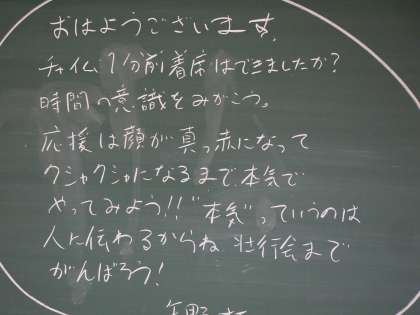 おはようございます。
チャイム1分前着席はできましたか?
時間の意識をみがこう。
応援は顔が真っ赤になって
クシャクシャになるまで、本気で
やってみよう!!"本気"っていうのは
人に伝わるからね 壮行会まで
がんばろう!